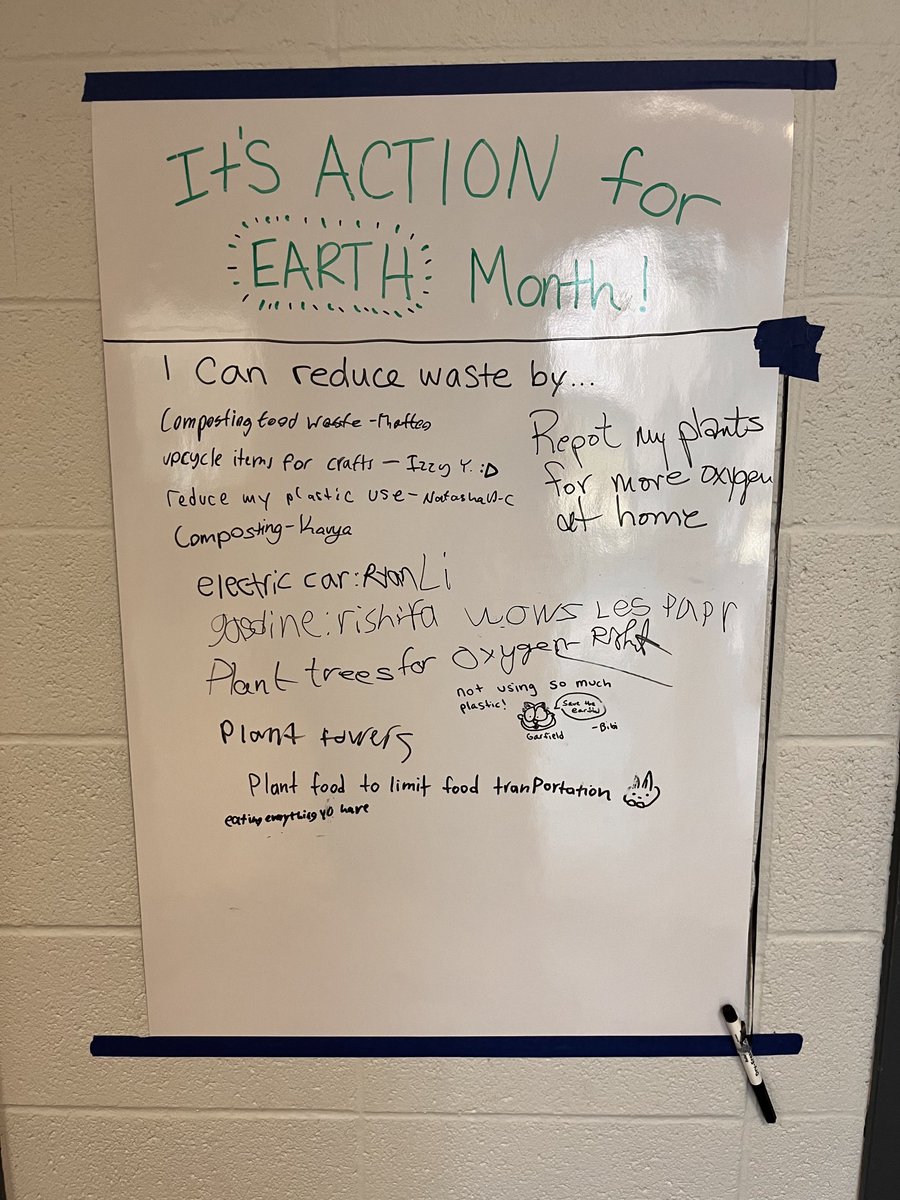 It's ACTION for
EARTH Month!
I Can reduce waste by...
Composting food waste - Matteo
upcycle items for crafts - Izzy Y. :D
reduce my plastic use - Natasha
Composting - Kavya
Repot my plants
for more oxygen
at home
electric car: Ryan Li
gasoline: rishita
wows Les papr
Plant trees for oxygen-
not using so much
plastic!
Save the
earth!
Garfield
-Bibi
Plant
Plant food to limit food tranPortation
eating everything yo have